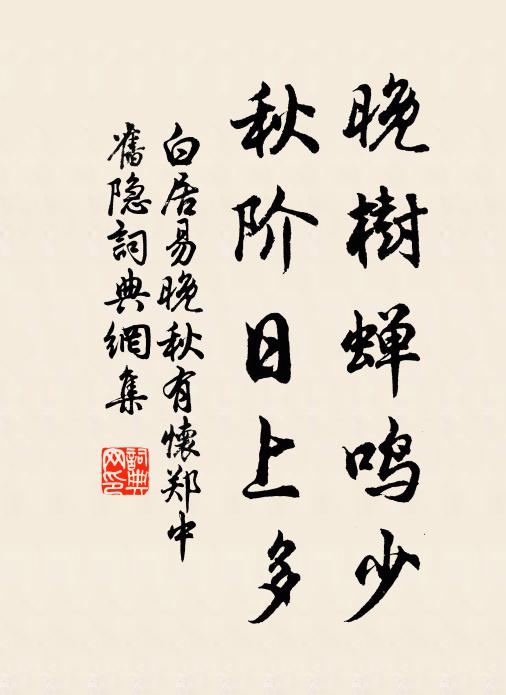 晚樹蝉鸣少
秋阶日上多
白居易晚秋有懷郑中
舊隐詞典網集
詞典
网印